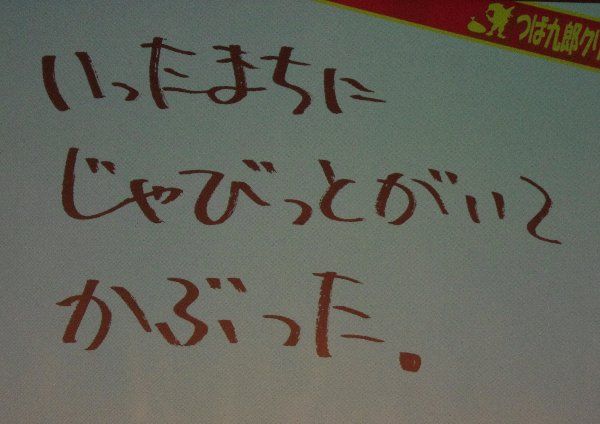 つば九郎クリ
いったまちに
じゃびっとがいて
かぶった.